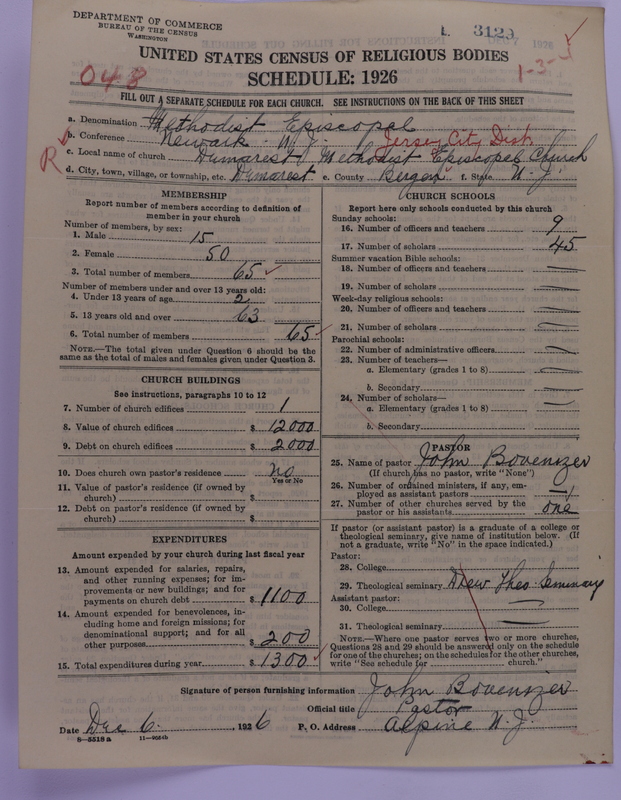 DEPARTMENT OF COMMERCE
BUREAU OF THE CENSUS
WASHINGTON
L. 3129
1926
UNITED STATES CENSUS OF RELIGIOUS BODIES
SCHEDULE: 1926
048
1-3-5
FILL OUT A SEPARATE SCHEDULE FOR EACH CHURCH. SEE INSTRUCTIONS ON THE BACK OF THIS SHEET
a. Denomination Methodist Episcopal
b. Conference Newark - N. J. Jersey City Dist.
R
c. Local name of church Dumarest Methodist Episcopal Church
d. City, town, village, or township, etc. Dumarest e. County Bergen f. State N. J.
MEMBERSHIP
Report number of members according to definition of
member in your church
Number of members, by sex:
1. Male 15
2. Female 50
3. Total number of members 65
Number of members under and over 13 years old:
4. Under 13 years of age 2
5. 13 years old and over 63
6. Total number of members 65
NOTE.—The total given under Question 6 should be the
same as the total of males and females given under Question 3.
CHURCH BUILDINGS
See instructions, paragraphs 10 to 12
7. Number of church edifices 1
8. Value of church edifices $ 12000
9. Debt on church edifices $ 2000
10. Does church own pastor's residence no
Yes or No
11. Value of pastor's residence (if owned by
church) $
12. Debt on pastor's residence (if owned by
church) $
EXPENDITURES
Amount expended by your church during last fiscal year
13. Amount expended for salaries, repairs,
and other running expenses; for im-
provements or new buildings; and for
payments on church debt $ 1100
14. Amount expended for benevolences, in-
cluding home and foreign missions; for
denominational support; and for all
other purposes $ 200
15. Total expenditures during year $ 1300
CHURCH SCHOOLS
Report here only schools conducted by this church
Sunday schools:
16. Number of officers and teachers 9
17. Number of scholars 45
Summer vacation Bible schools:
18. Number of officers and teachers
19. Number of scholars
Week-day religious schools:
20. Number of officers and teachers
21. Number of scholars
Parochial schools:
22. Number of administrative officers
23. Number of teachers—
a. Elementary (grades 1 to 8)
b. Secondary
24. Number of scholars—
a. Elementary (grades 1 to 8)
b. Secondary
PASTOR
25. Name of pastor John Bovenizer
(If church has no pastor, write "None")
26. Number of ordained ministers, if any, em-
ployed as assistant pastors —
27. Number of other churches served by the
pastor or his assistants one
If pastor (or assistant pastor) is a graduate of a college or
theological seminary, give name of institution below. (If
not a graduate, write "No" in the space indicated.)
Pastor:
28. College
29. Theological seminary Drew Theo. Seminary
Assistant pastor:
30. College
31. Theological seminary
NOTE.—Where one pastor serves two or more churches,
Questions 28 and 29 should be answered only on the schedule
for one of the churches; on the schedules for the other churches,
write "See schedule for church."
Signature of person furnishing information John Bovenizer
Official title Pastor
Date Dec 6. , 1926 P. O. Address Alpine N. J.
8—5518 a 11—9054b